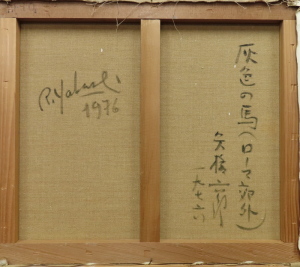 R.Yabashi
1976
灰色の馬(ローマ郊外)
矢橋六郎
一九七六